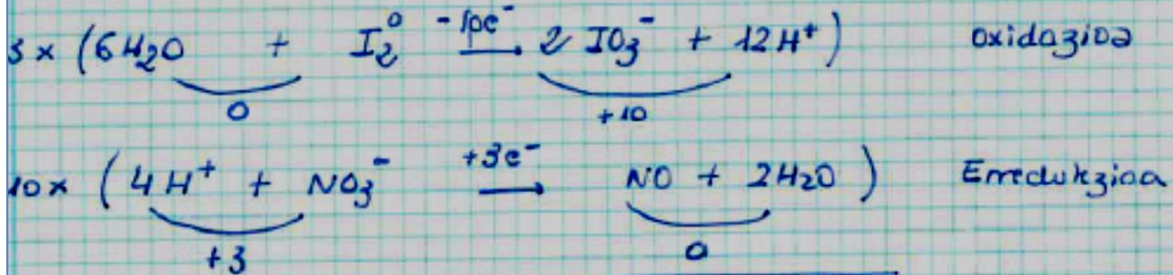 3 x (6H₂O + I₂⁰ -10e⁻ → 2 IO₃⁻ + 12H⁺) oxidazioa
0 +10
10x (4H⁺ + NO₃⁻ +3e⁻ → NO + 2H₂O) Erredukzioa
+3 0